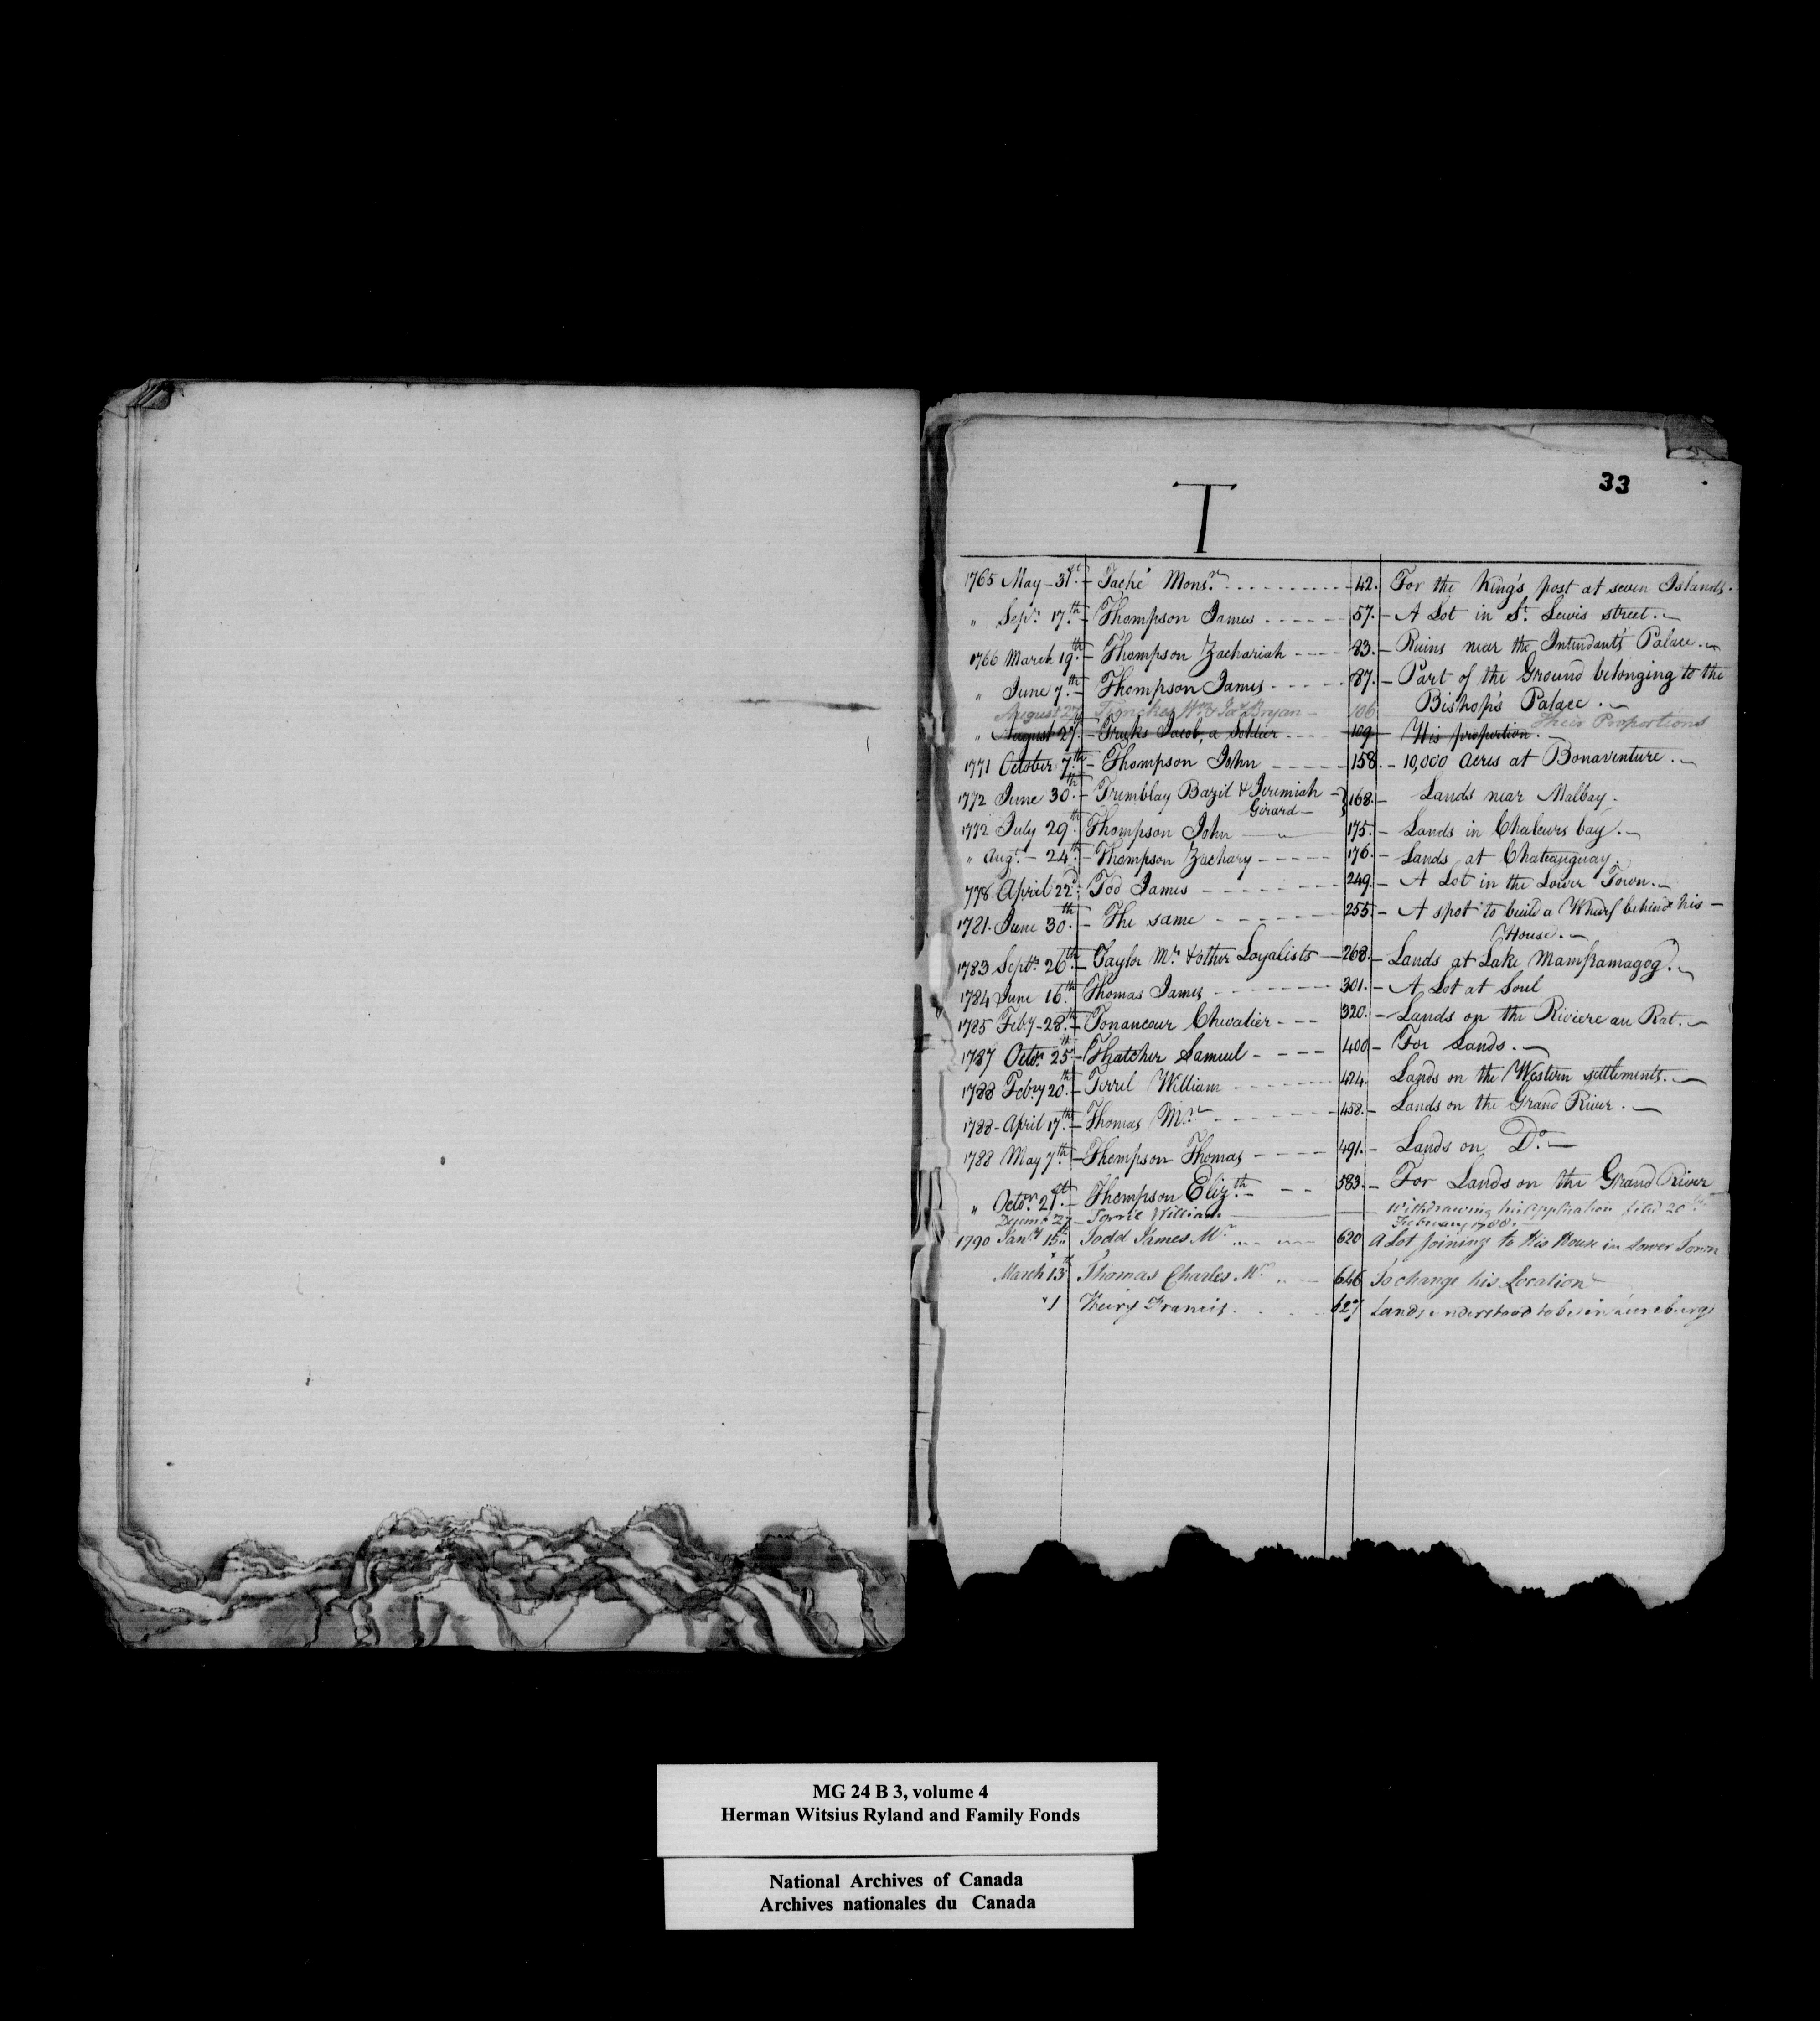 33
T
1765 May - 31st. - Taché Monsr. - - - - 42. For the King's post at seven Islands.
" Sepr. 17.th - Thompson James - - - - 57. - A Lot in St. Lewis street. -
1766 March 19.th - Thompson Zachariah - - - - 83. - Ruins near the Intendant's Palace. -
" June 7.th - Thompson James - - - - 87. - Part of the Ground belonging to the
Bishop's Palace. -
August 27 Wm & Jas Bryan - 106 Their Proportions
" August 27. - Jacob, a Soldier - - - 109 - His proportion. -
1771 October 7.th - Thompson John - - - - 158. - 10,000 Acres at Bonaventure. -
1772 June 30.th - Tremblay Bazil & Jeremiah - } 168. - Lands near Malbay.
Girard -
1772 July 29.th Thompson John - 175. - Lands in Chaleurs bay. -
" Augt. - 24.th - Thompson Zachary - - - - 176. - Lands at Chateauguay.
778 April 22d. Tod James - - - - 249. - A Lot in the Lower Town. -
1781. June 30.th - The same - - - - 255 - A spot to build a Wharf behind his -
House. -
1783 Septr. 26th. - Taylor Mr. & other Loyalists - 268. - Lands at Lake Mamframagog. -
1784 June 16th. Thomas James - - - - 301. - A Lot at Soul
1785 Feby - 28.th - Tonancour Chevalier - - - 320. - Lands on the Riviere au Rat. -
1787 Octor. 25th - Thatcher Samuel - - - - 400 - For Lands. -
1788 Febry 20.th - Terrel William - - - - 424. Lands on the Western settlements. -
1788 - April 17.th - Thomas Mr. - - - - 458. - Lands on the Grand River. -
1788 May 7.th - Thompson Thomas - - - - 491. - Lands on Do. -
" Octor. 21st. - Thompson Elizth. - - - 583. - For Lands on the Grand River
Decemr 27 - William - withdrawing his Application filed 20th
February 1788. -
1790 Jany 15th Todd James Mr - - - 620 A Lot joining to His House in Lower Town
March 13th Thomas Charles Mr - - 646 To change his Location
" 1 Francis - - - 627 Lands understood to be in Luneburg
MG 24 B 3, volume 4
Herman Witsius Ryland and Family Fonds
National Archives of Canada
Archives nationales du Canada